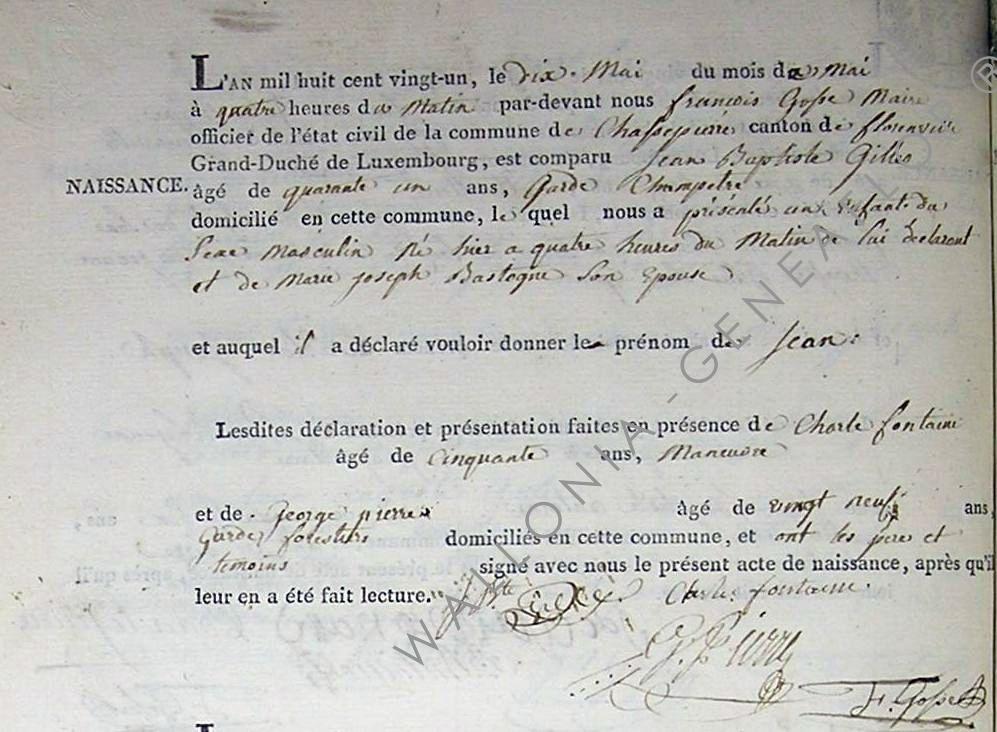 L'AN mil huit cent vingt-un, le dix Mai du mois de Mai
à quatre heures du Matin par-devant nous françois Gosse Maire
officier de l'état civil de la commune de Chassepierre canton de florenville
Grand-Duché de Luxembourg, est comparu Jean Baptiste Gilles
NAISSANCE. âgé de quarante un ans, Garde Champetre
domicilié en cette commune, le quel nous a présenté un Enfant du
Sexe Masculin Né hier a quatre heures du Matin de lui déclarant
et de Marie joseph Bastogne Son Epouse
et auquel il a déclaré vouloir donner le prénom de Jean
Lesdites déclaration et présentation faites en présence de Charle fontaine
âgé de Cinquante ans, Maneuvre
et de George pierre âgé de vingt neuf ans,
Garde forestier domiciliés en cette commune, et ont les pere et
temoins signé avec nous le présent acte de naissance, après qu'il
leur en a été fait lecture.
Charle fontaine
G. Pierre
F. Gosse
WALLONIA-GENEA
®